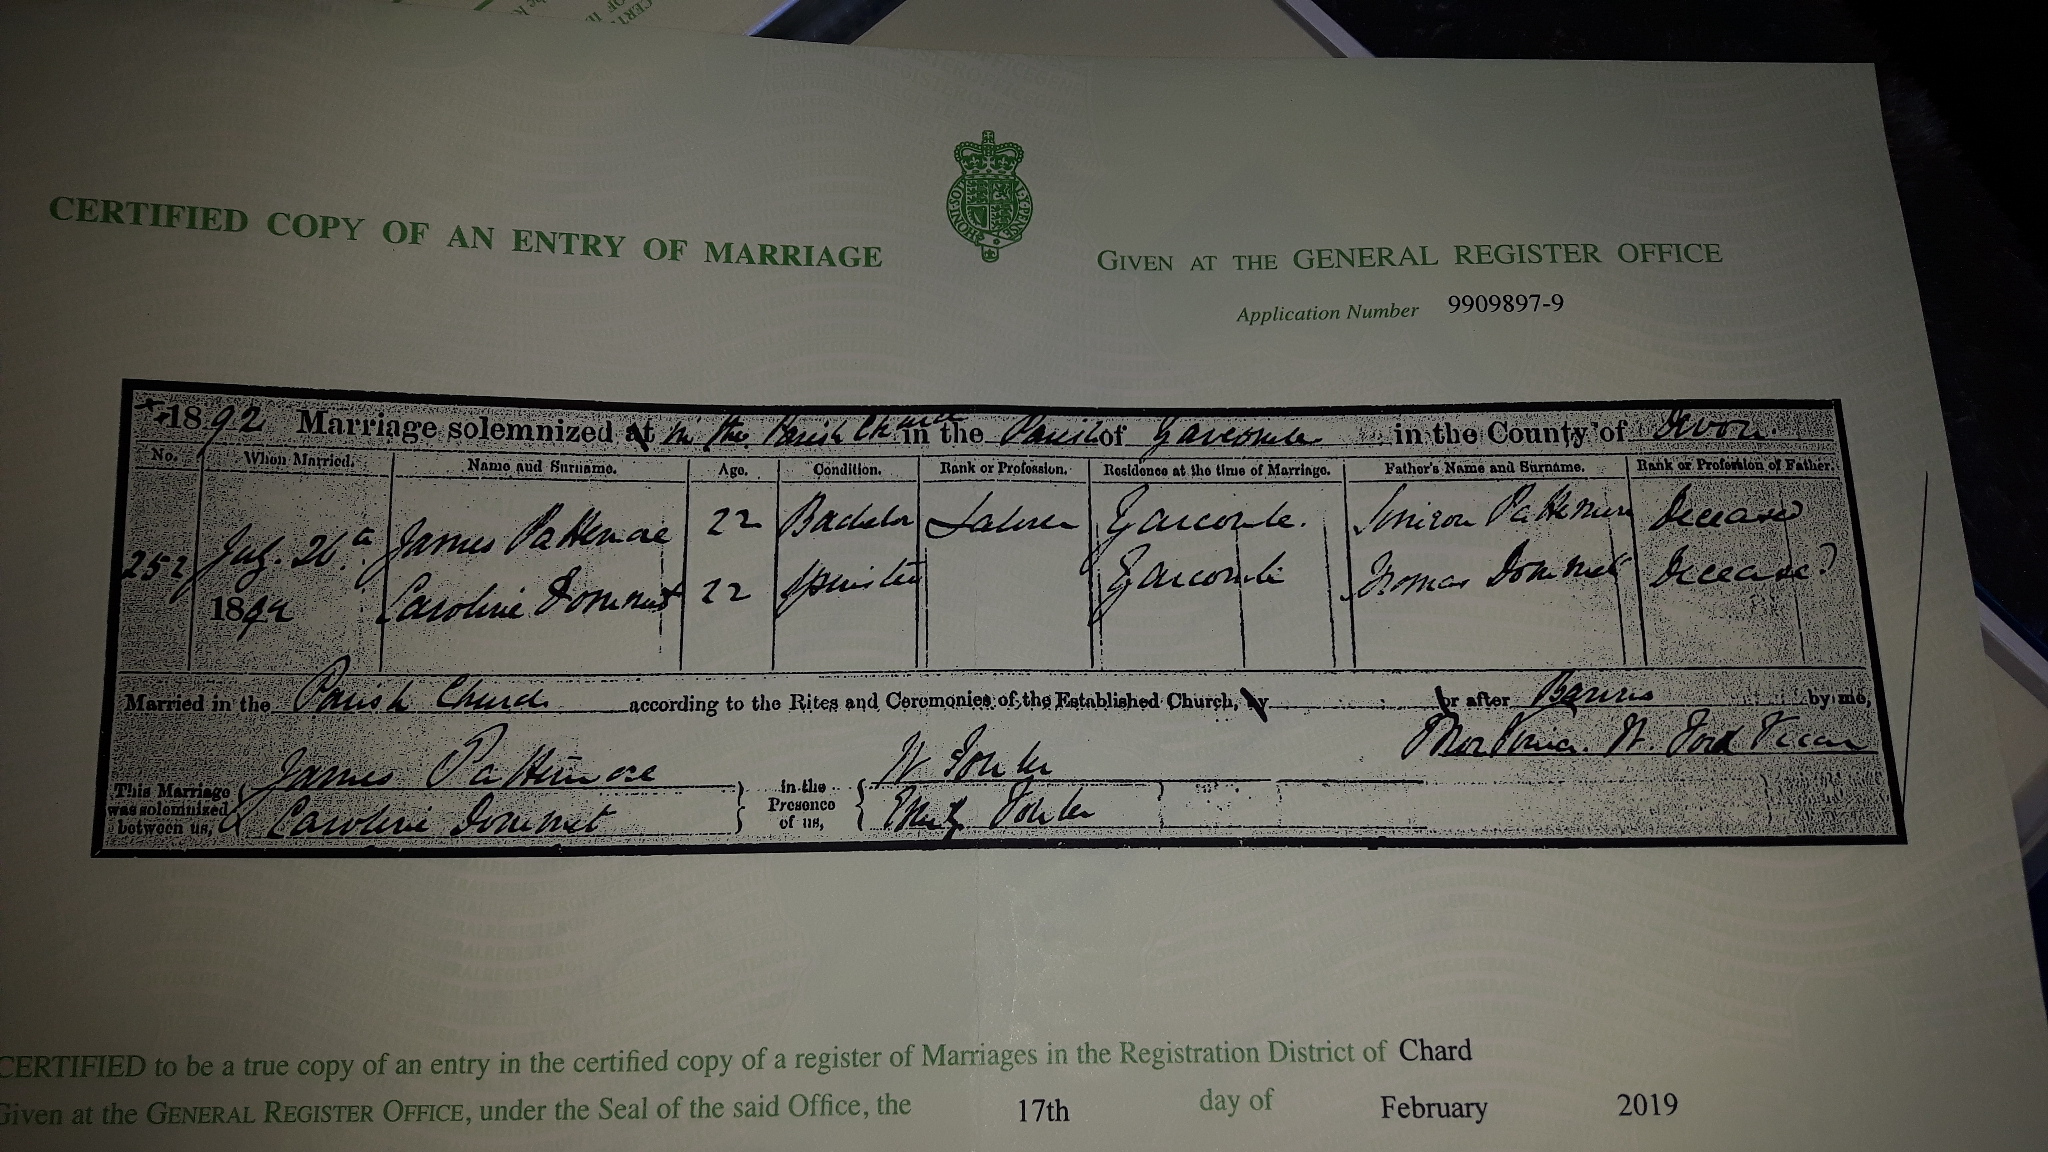 CERTIFIED COPY OF AN ENTRY OF MARRIAGE
GIVEN AT THE GENERAL REGISTER OFFICE
Application Number 9909897-9
1892 Marriage solemnized at in the Parish Church in the Parish of Yarcombe in the County of Devon.
No. When Married. Name and Surname. Age. Condition. Rank or Profession. Residence at the time of Marriage. Father's Name and Surname. Rank or Profession of Father.
252 July. 26th James Pattemore 22 Bachelor Laborer Yarcombe. Simeon Pattemore Deceased
1892 Caroline Dommet 22 Spinster Yarcombe Thomas Dommet Deceased
Married in the Parish Church according to the Rites and Ceremonies of the Established Church, by or after Banns by me,
N. Ford Vicar
This Marriage was solemnized between us, James Pattemore Caroline Dommet in the Presence of us, W Fowler Emily Fowler
CERTIFIED to be a true copy of an entry in the certified copy of a register of Marriages in the Registration District of Chard
Given at the GENERAL REGISTER OFFICE, under the Seal of the said Office, the 17th day of February 2019